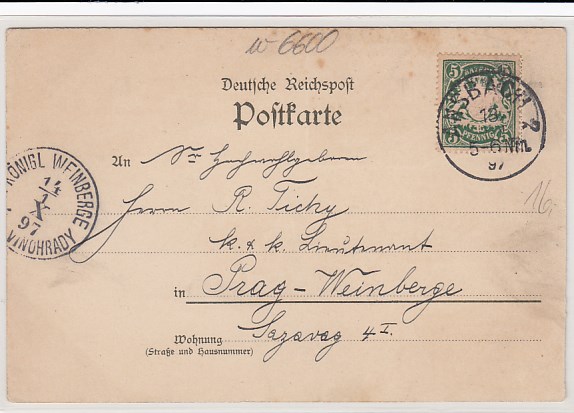 w 6600
Deutsche Reichspost
Postkarte
BAYERN
5 5
PFENNIG
ANSBACH
13.
5-6 Nm.
97
KÖNIGL WEINBERGE
14
X
97
VINOHRADY
An Sr Hochwohlgeboren
Herrn R. Tichy
k. & k. Lieutenant
in Prag-Weinberge
Wohnung Sazavag 4 I.
(Straße und Hausnummer)
16.